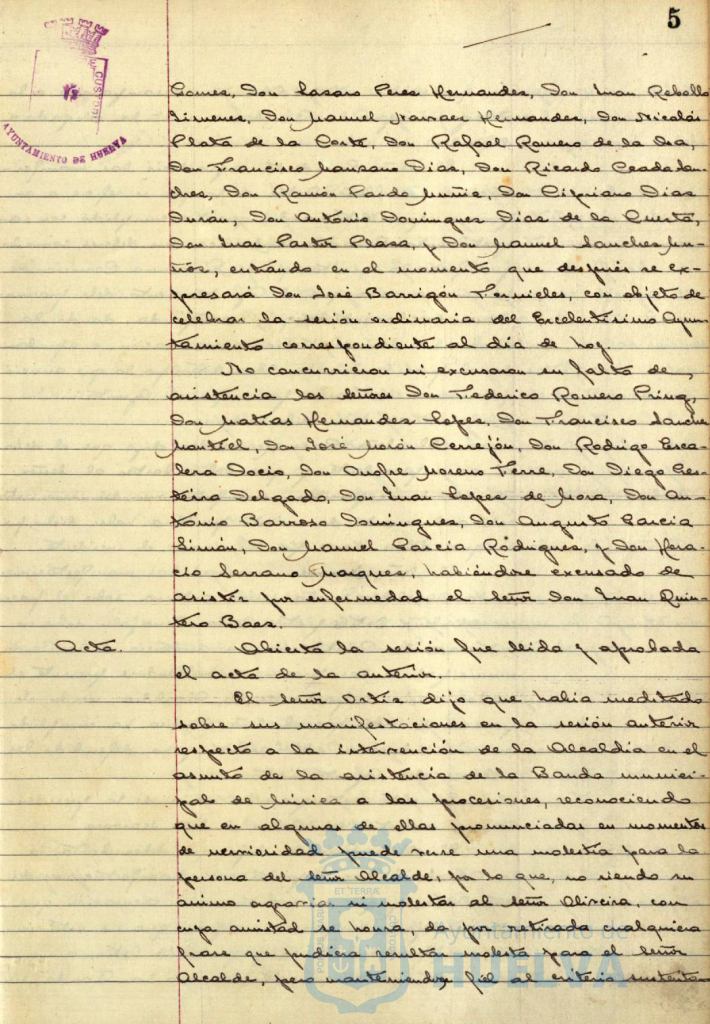 5
CUSTODI
AYUNTAMIENTO DE HUELVA
Gomez, Don Lazaro Perez Hernandez, Don Juan Rebollo
Jimenez, Don Manuel Narvaez Hernandez, Don Nicolás
Plata de la Corte, Don Rafael Romero de la Osa,
Don Francisco Manzano Dias, Don Ricardo Ceada San-
chez, Don Ramón Pardo Muñiz, Don Cipriano Dias
Durán, Don Antonio Dominguez Dias de la Cuesta,
Don Juan Pastor Plaza, y Don Manuel Sanchez Mu-
ñoz, entrando en el momento que después se ex-
presará Don José Barrigón Fornieles, con objeto de
celebrar la sesión ordinaria del Excelentísimo Ayun-
tamiento correspondiente al día de hoy.
No concurrieron ni excusaron su falta de
asistencia los señores Don Federico Romero
Don Matías Hernandez Lopez, Don Francisco Sanchez
Montiel, Don José Morón Cerrejón, Don Rodrigo Esca-
lera Docio, Don Onofre Moreno Ferre, Don Diego
Delgado, Don Juan Lopez de Mora, Don An-
tonio Barroso Dominguez, Don Augusto Garcia
Simón, Don Manuel Garcia Rodriguez, y Don Hora-
cio Serrano Marquez, habiéndose excusado de
asistir por enfermedad el señor Don Juan Quin-
tero Baez.
Acta. Abierta la sesión fue leida y aprobada
el acta de la anterior.
El señor Ortiz dijo que había meditado
sobre sus manifestaciones en la sesión anterior
respecto a la intervención de la Alcaldía en el
asunto de la asistencia de la Banda munici-
pal de Música a las procesiones, reconociendo
que en algunas de ellas pronunciadas en momentos
de nerviosidad puede verse una molestia para la
persona del señor Alcalde, por lo que, no siendo su
ánimo agraviar ni molestar al señor Oliveira, con
cuya amistad se honra, da por retirada cualquiera
frase que pudiera resultar molesta para el señor
Alcalde, pero manteniendose fiel al criterio sustenta-
ET TERRAE
Ayuntamiento de
HUELVA